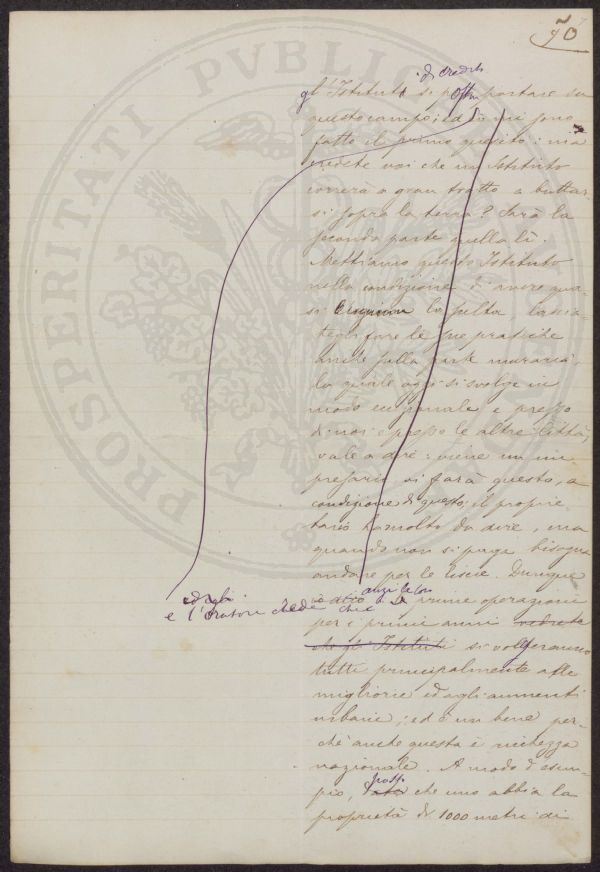 70
di credito
gl'Istituti si possono portare su
questo campo; ed
fatto il primo quesito: ma
credete voi che un Istituto
correrà a gran tratto a buttar-
si sopra la terra? Sarà la
seconda parte quella lì.
Mettiamo questo Istituto
nella condizione di avere qua-
si la scelta, lascia-
tegli fare le sue pratiche
anche sulla parte muraria,
la quale oggi si svolge in
modo eccezionale e presso
di noi e presso le altre Città,
vale a dire: viene un im-
presario, vi farà questo, a
condizione di questo; il proprie-
tario ha molto da dire, ma
quando non si paga bisogna
andare per le liscie. Dunque
ed egli anzi le sue
e l'oratore crede che prime operazioni
per i primi anni vedrete
che gl'Istituti si volgeranno
tutti principalmente alle
migliorie ed agli aumenti
urbani; ed è un bene per-
chè anche questa è ricchezza
nazionale. A modo d'esem-
pio, che uno abbia la
proprietà di 1000 metri di
PROSPERITATI PVBLICAE